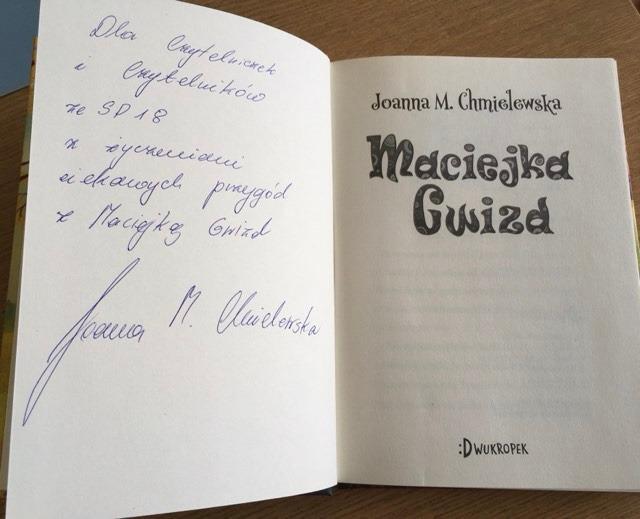 Dla Czytelniczek
i Czytelników
ze SP 18
z życzeniami
ciekawych przygód
z Maciejką Gwizd
Joanna M. Chmielewska
Joanna M. Chmielewska
Maciejka
Gwizd
:DWUKROPEK